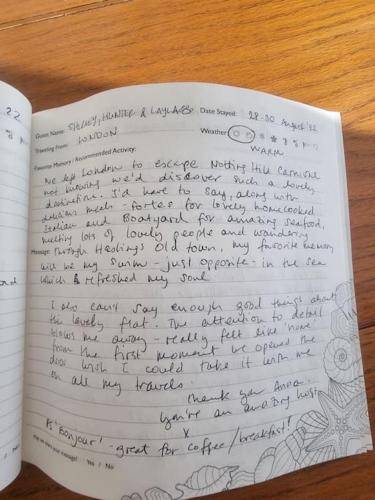 22
Guest Name: SHELLEY, HUNTER & LAYLA Date Stayed: 28-30 August '22
Traveling From: LONDON Weather:
WARM
Favorite Memory / Recommended Activity:
We left London to escape Notting Hill Carnival
not knowing we'd discover such a lovely
destination. I'd have to say, along with
delicious meals - Fortes for lovely homecooked
Italian and Boatyard for amazing seafood,
meeting lots of lovely people and wandering
Message: through Hastings Old Town, my favorite memory
will be my swim - just opposite - in the sea
which refreshed my soul.
I also can't say enough good things about
this lovely flat. The attention to detail
blows me away - really felt like 'home'
from the first moment we opened the
door. Wish I could take it with me
on all my travels.
Thank you Anna.
You're an amazing host
x
PS 'Bonjour' - great for coffee/breakfast!
May we share your message? Yes / No